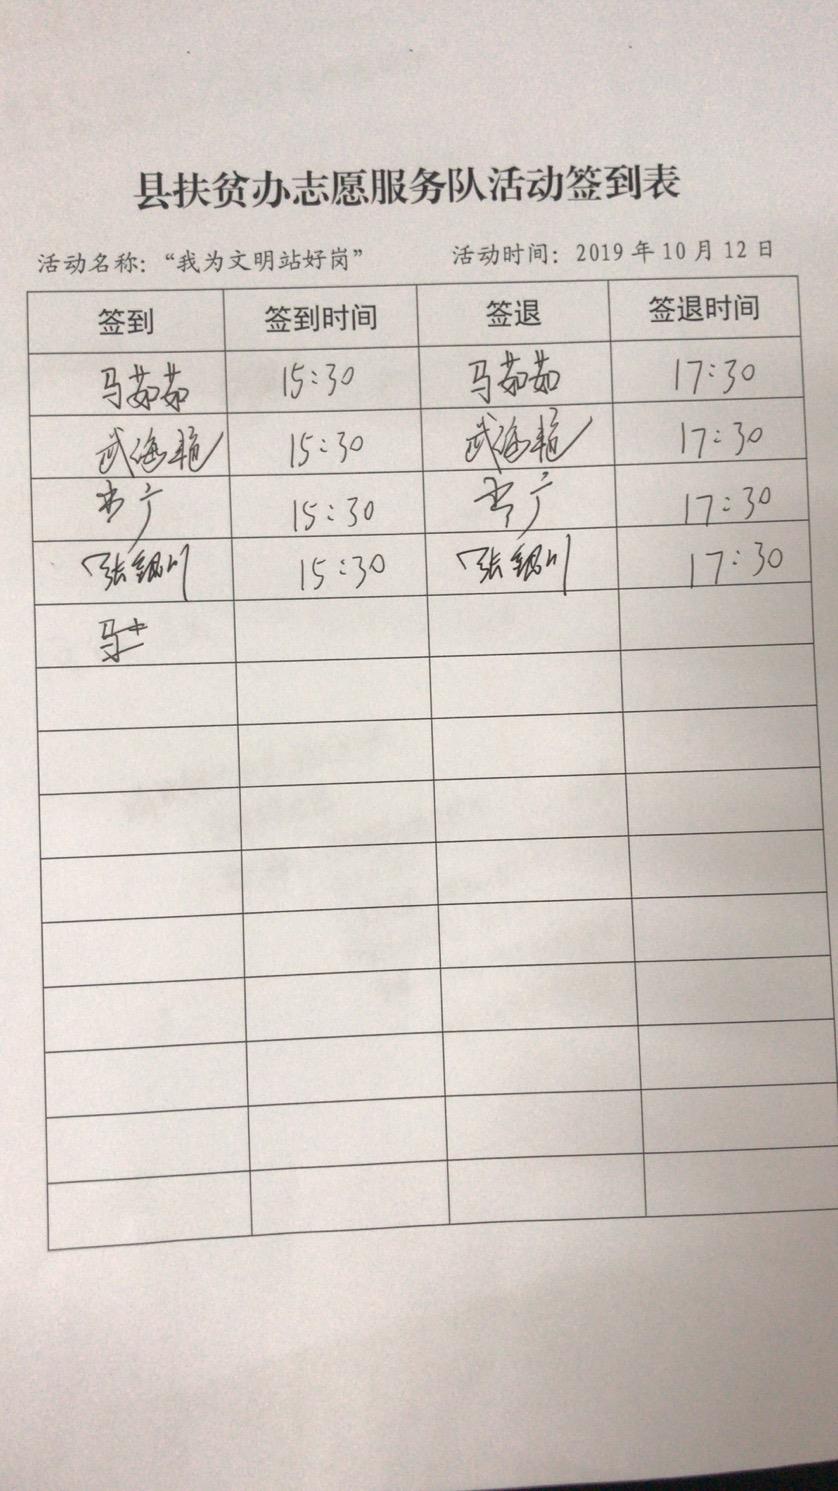 县扶贫办志愿服务队活动签到表
活动名称：“我为文明站好岗” 活动时间：2019 年 10 月 12 日
签到 签到时间 签退 签退时间
马茹茹 15:30 马茹茹 17:30
武海艳 15:30 武海艳 17:30
15:30 17:30
张银川 15:30 张银川 17:30